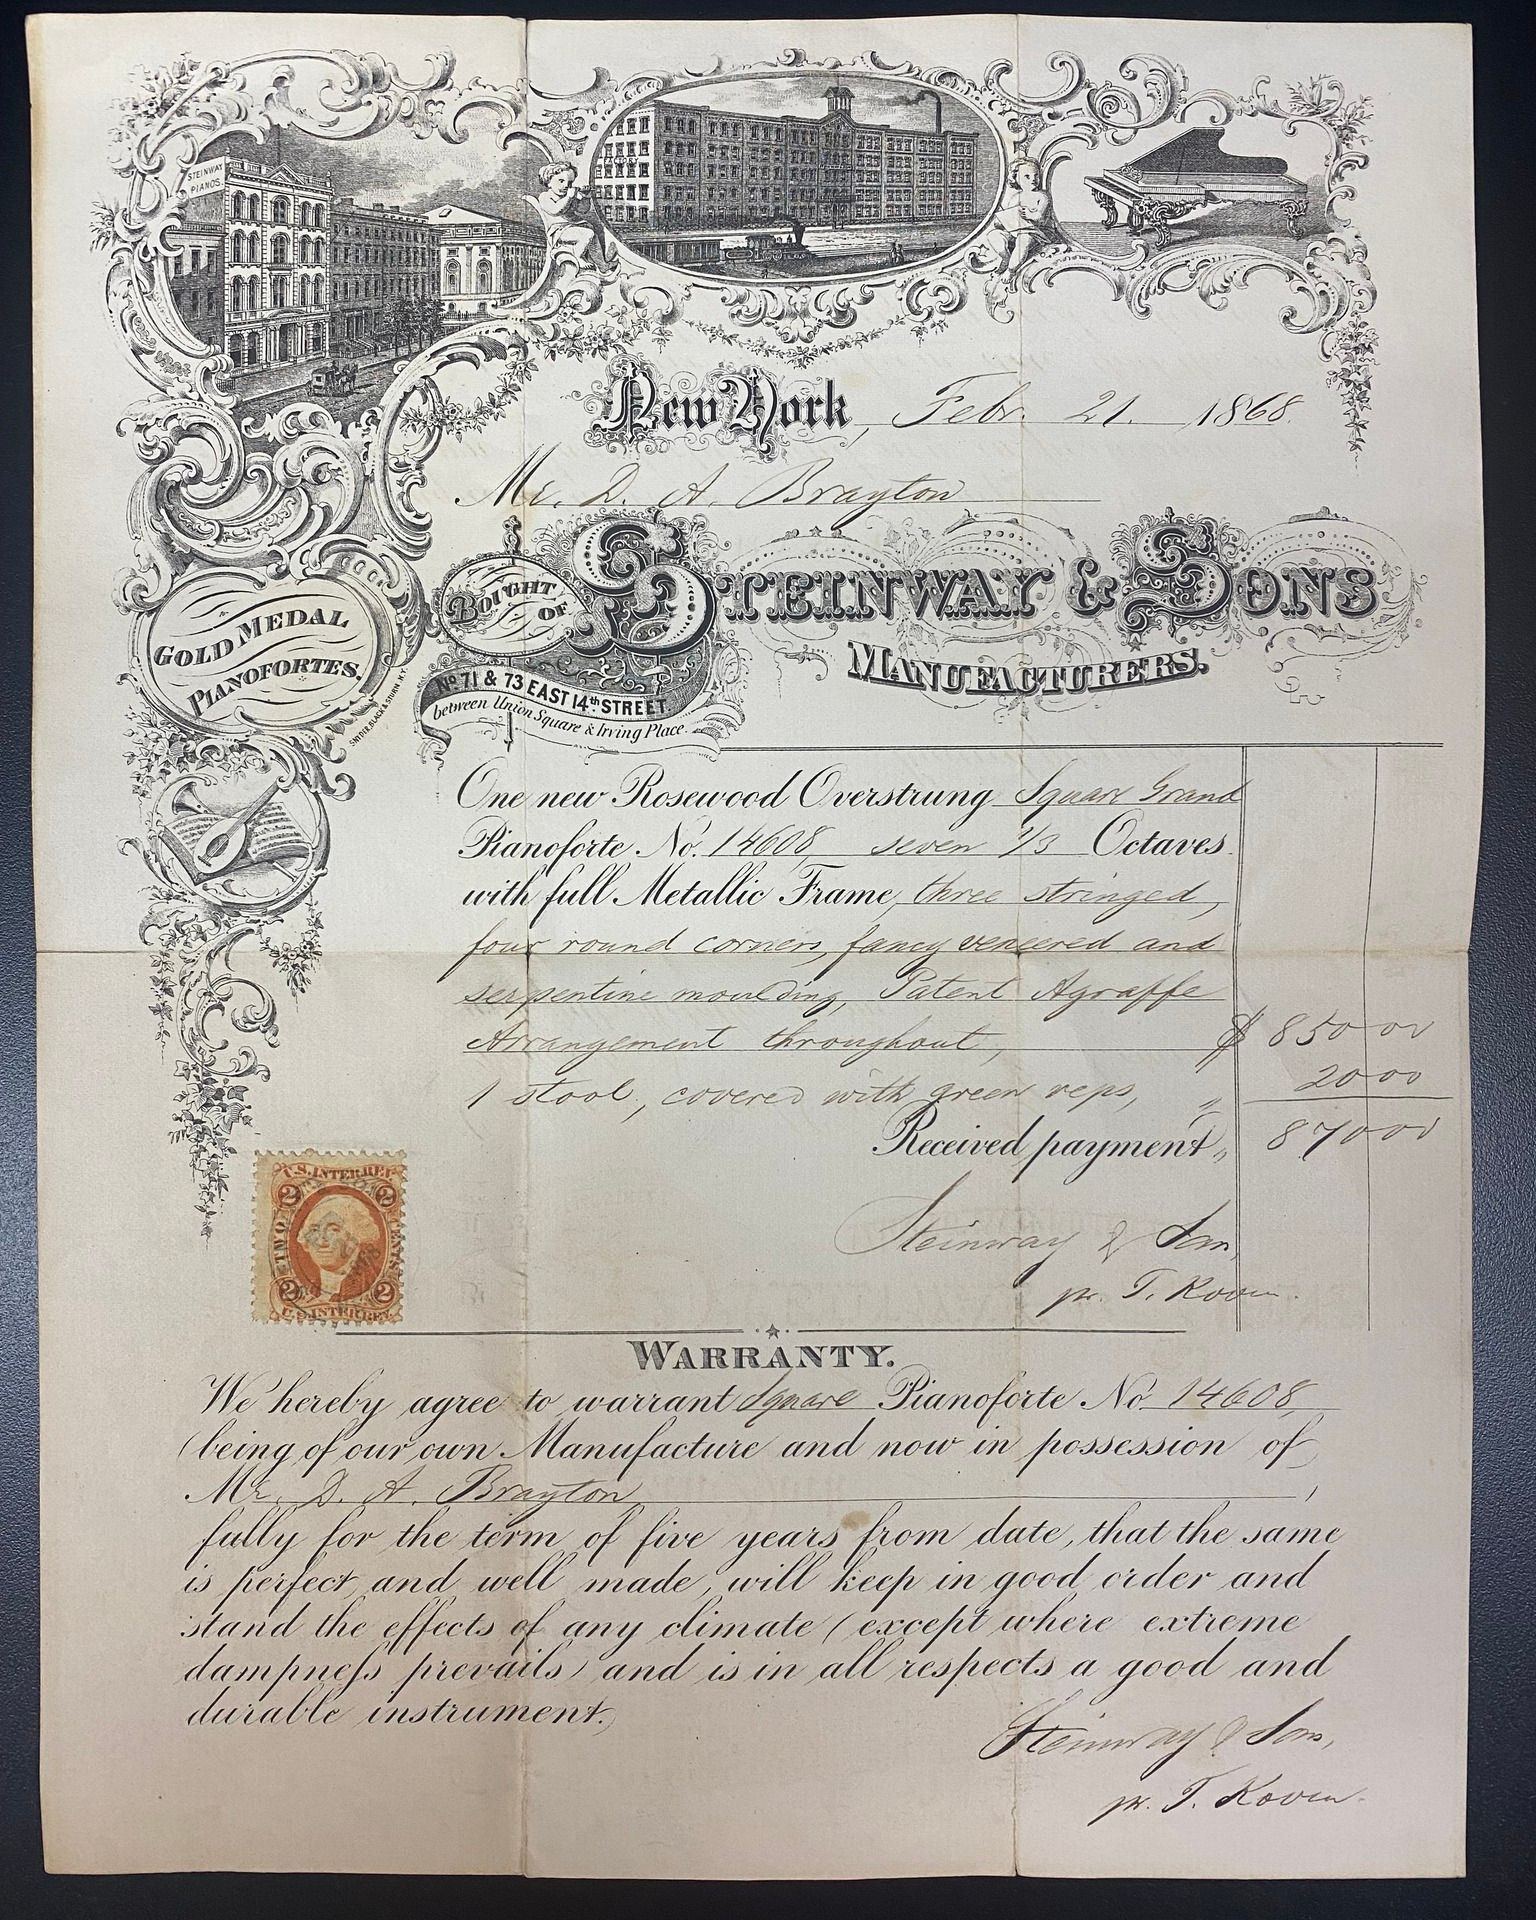 STEINWAY
PIANOS.
New York, Febr. 21. 1868.
Mr. D. A. Brayton
BOUGHT OF STEINWAY & SONS
MANUFACTURERS.
GOLD MEDAL
PIANOFORTES.
SNYDER, BLACK & STURN, N.Y.
No. 71 & 73 EAST 14th STREET
between Union Square & Irving Place.
One new Rosewood Overstrung Square Grand
Pianoforte No. 14608, seven 1/3 Octaves
with full Metallic Frame, three stringed,
four round corners, fancy veneered and
serpentine moulding, Patent Agraffe
Arrangement throughout, $ 850 00
1 stool, covered with green reps, " 20 00
Received payment, " 870 00
Steinway & Sons,
pr. T. Koven.
U.S. INTER. REV.
2 2
TWO CENTS
2 2
U.S. INTER. REV.
WARRANTY.
We hereby agree to warrant Square Pianoforte No. 14608,
(being of our own Manufacture and now in possession of
Mr. D. A. Brayton,
fully for the term of five years from date, that the same
is perfect and well made, will keep in good order and
stand the effects of any climate (except where extreme
dampness prevails) and is in all respects a good and
durable instrument.)
Steinway & Sons,
pr. T. Koven.